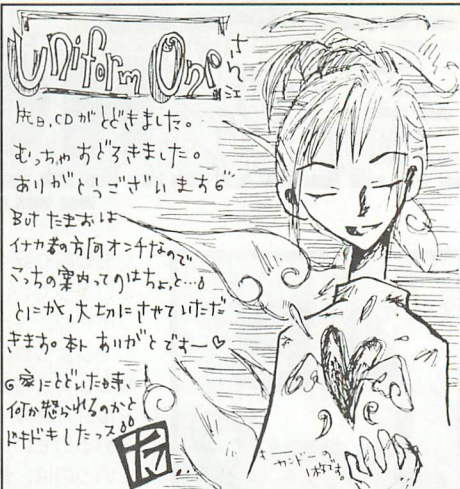 Uniform Oneさん江
先日、CDがとどきました。
むっちゃおどろきました。
ありがとうございます
But たまおは
イナカ者の方向オンチなので
こっちの案内ってのはちょっと…
とにかく、大切にさせていただ
きます。本ト ありがとですー♡
家にとどいた時、
何か怒られるのかと
ドキドキしたっス
タマ
←カンドーの
図です。